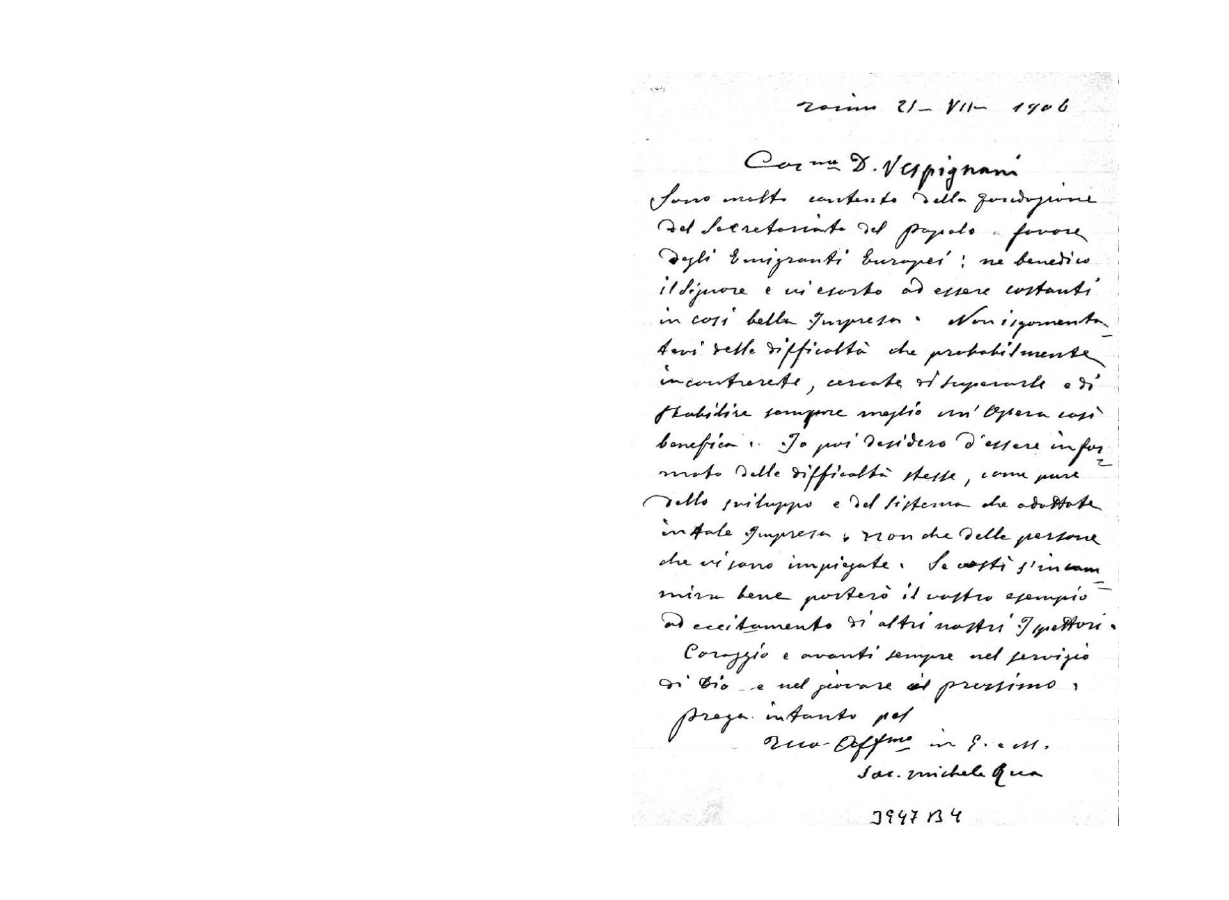 Torino 21 - VII - 1906
Car.mo D. Vespignani
Sono molto contento della fondazione
del Secretariato del popolo a favore
degli Emigranti Europei: ne benedico
il Signore e vi esorto ad essere costanti
in così bella Impresa. Non isgomenta-
tevi delle difficoltà che probabilmente
incontrerete, cercate di superarle e di
stabilire sempre meglio un' Opera così
benefica. Io poi desidero d'essere infor-
mato delle difficoltà stesse, come pure
dello sviluppo e del sistema che adottate
in tale Impresa, non che delle persone
che vi sono impiegate. Se costì s'incam-
mina bene porterò il vostro esempio
ad eccitamento di altri nostri Ispettori.
Coraggio e avanti sempre nel servizio
di Dio e nel giovare al prossimo,
prega intanto pel
tuo Aff.mo in G. e M.
Sac. Michele Rua
3947 B 4